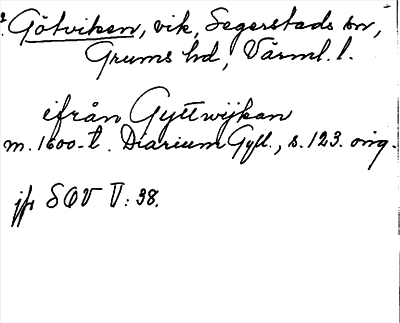 ? Götviken, vik, Segerstads sn,
Grums hd, Värml. l.
ifrån Gyttwijkan
m. 1600-t. Diarium Gyll., s. 123. orig.
jfr SOV V: 38.